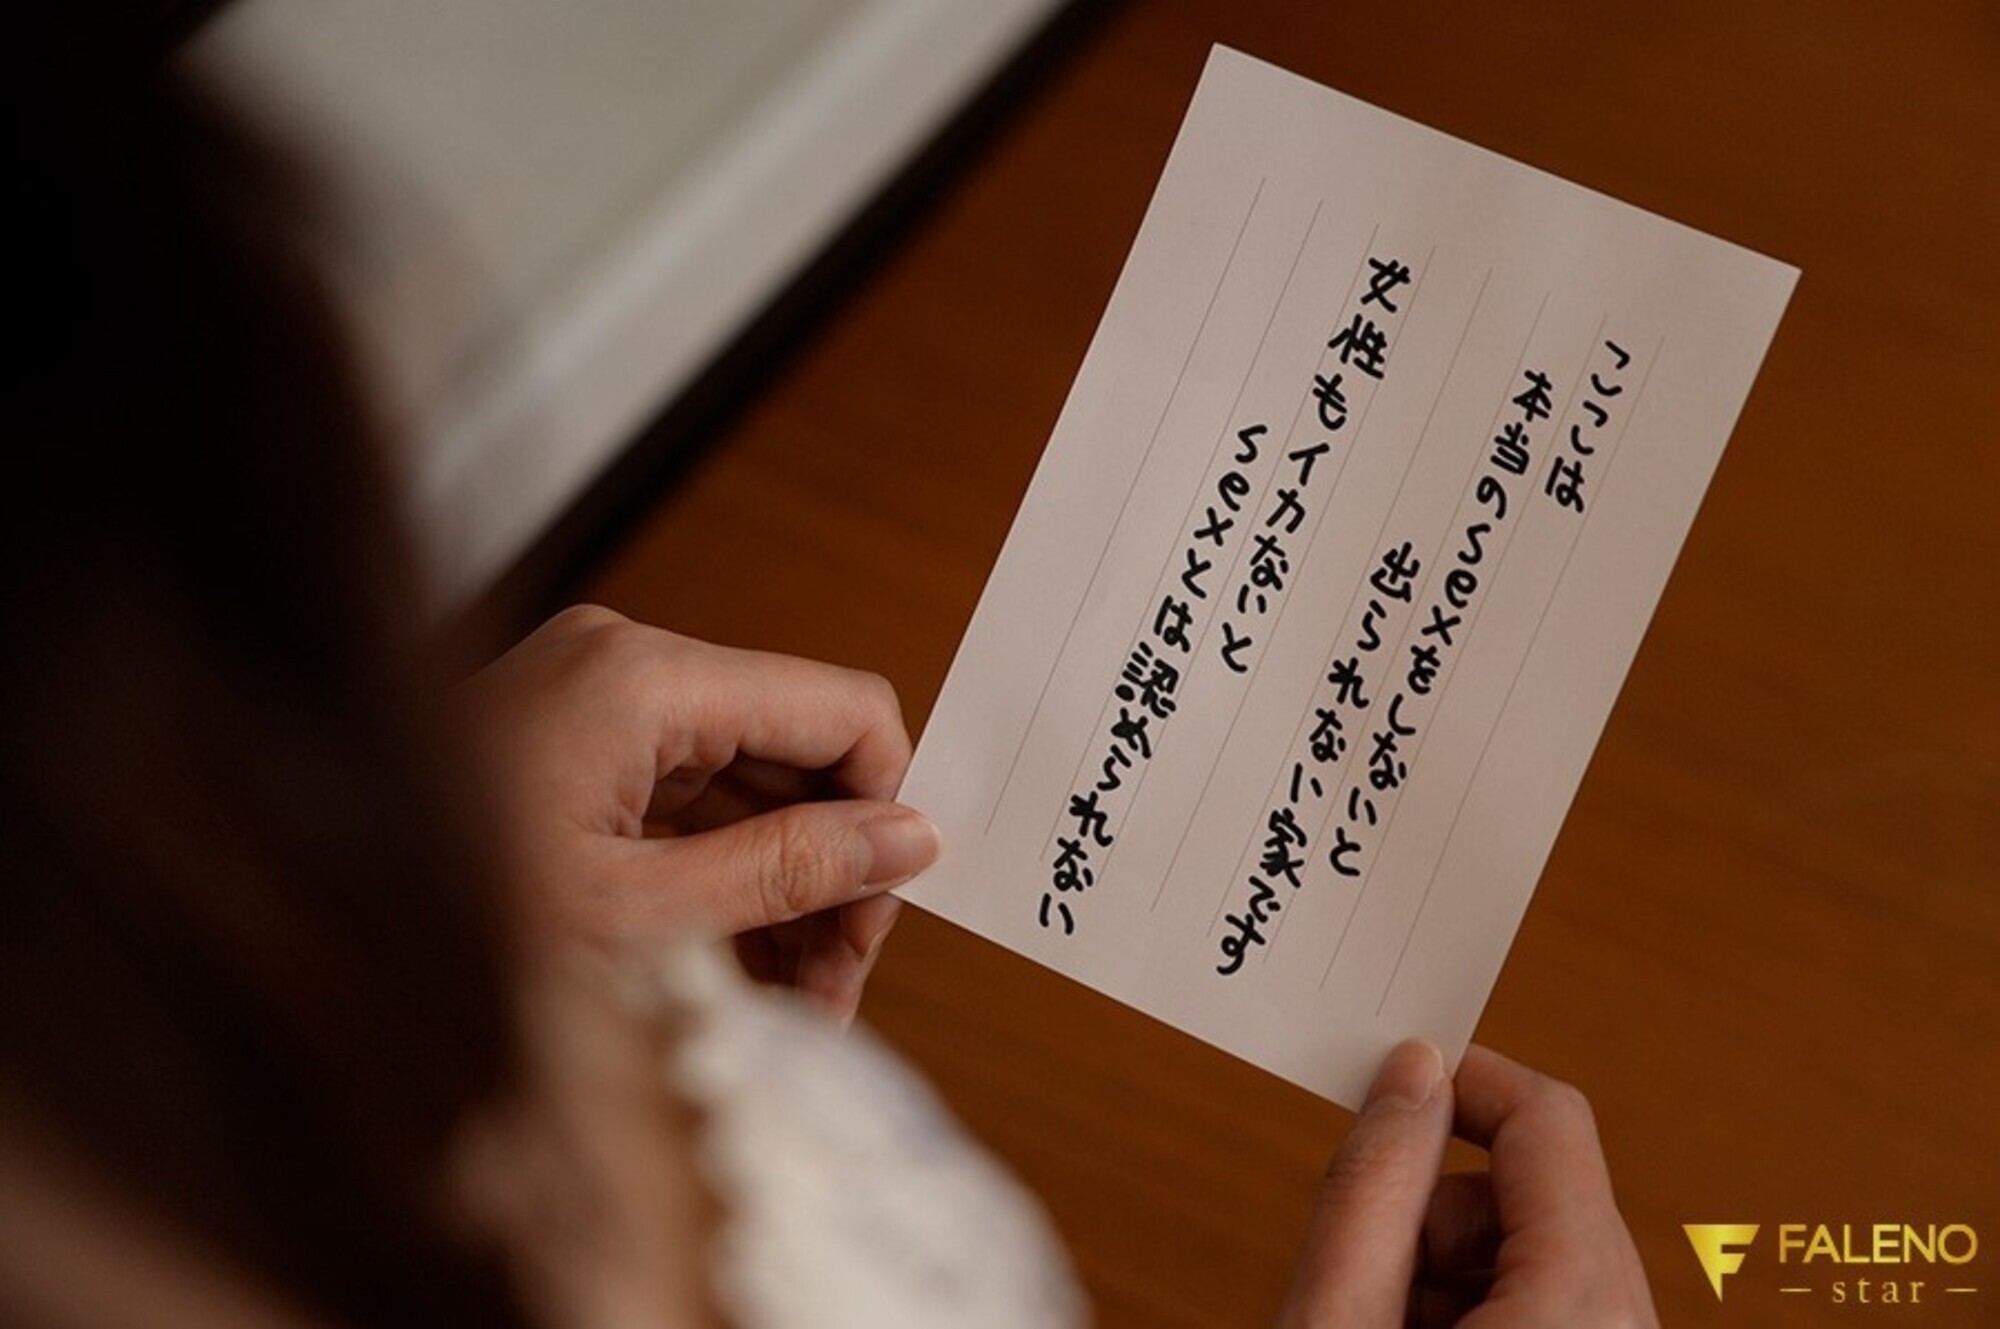 ここは
本当のsexをしないと
出られない家です
女性もイカないと
sexとは認められない
FALENO
star